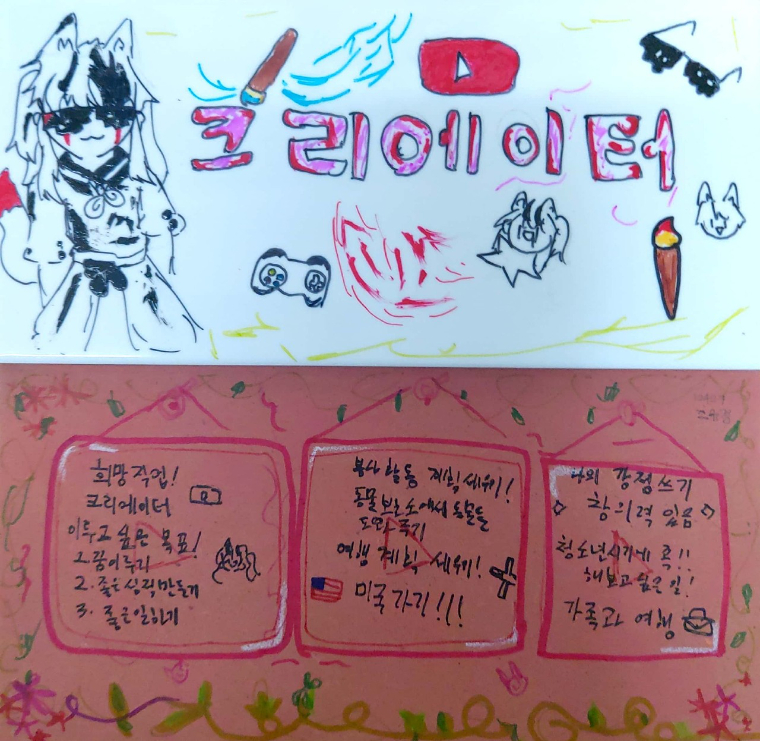 크리에이터
희망직업!
크리에이터
이루고 싶은 목표!
1. 꿈이루기
2. 좋은 성적만들기
3. 좋은일하기
봉사활동 계획세우기!
동물보호소에서 동물들
도와주기
여행 계획 세우기!
미국가기!!!
나의 강점쓰기
창의력 있음
청소년시기에 꼭!!
해보고 싶은 일!
가족과 여행